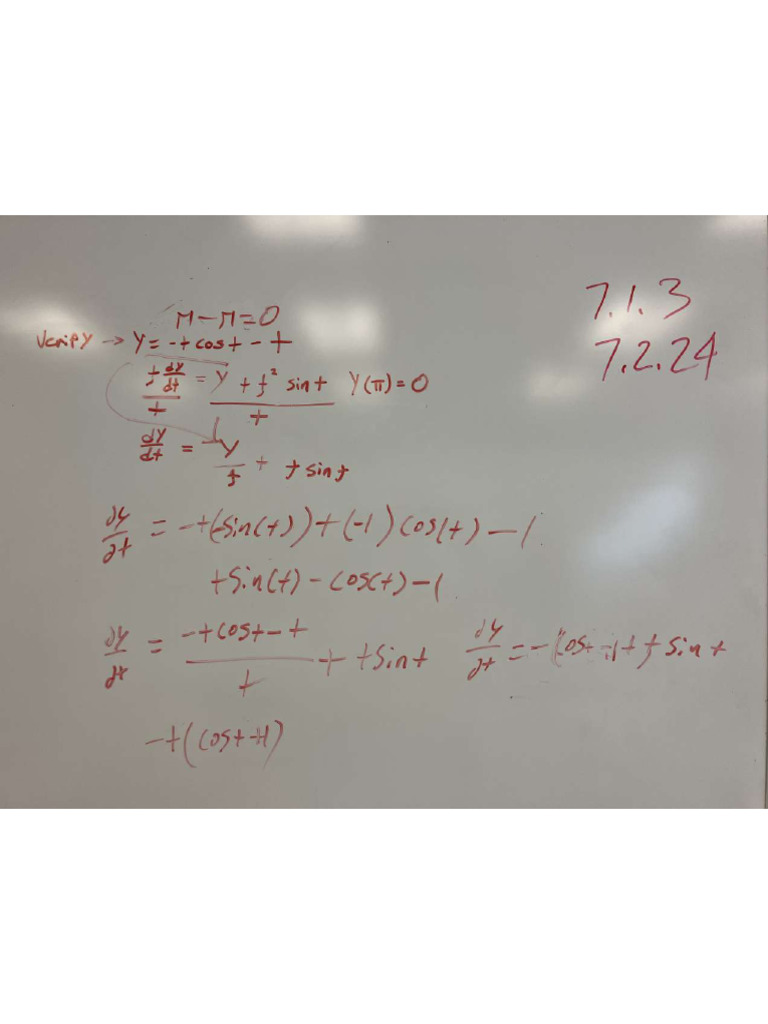 π-π=0
7.1.3
Verify → y = -t cos t - t
7.2.24
t dy/dt / t = y + t² sin t / t   y(π) = 0
dy/dt = y/t + t sin t
dy/dt = -t(-sin(t)) + (-1)cos(t) - 1
t sin(t) - cos(t) - 1
dy/dt = -t cos t - t / t + t sin t   dy/dt = - cos t - 1 + t sin t
-t(cos t +1)